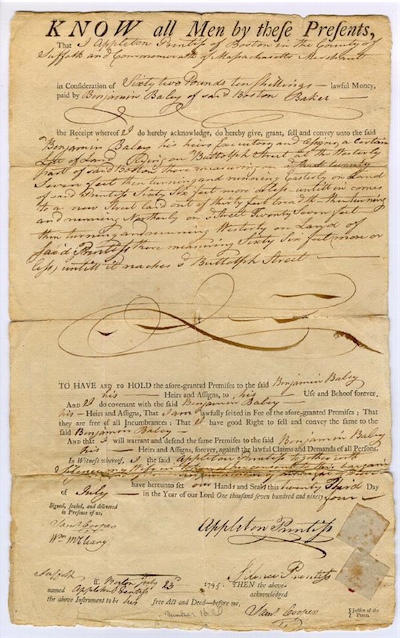 KNOW all Men by theſe Preſents,
That I Appleton Prentiſs of Boston in the County of
Suffolk and Commonwealth of Massachusetts Merchant
in Conſideration of Sixty two Pounds ten Shillings — lawful Money,
paid by Benjamin Baley of said Boston Baker
the Receipt whereof I do hereby acknowledge, do hereby give, grant, ſell and convey unto the ſaid
Benjamin Baley his heirs Executors and Aſsigns a Certain
Lot of Land lying on Buttolph Street at the Westerly
Part of said Boston there measuring twenty
Seven feet then turning and running Easterly on Land
of said Prentiſs Sixty Six feet more or leſs untill it comes
to a new Street laid out of thirty feet then turning
and running Northerly on Street Twenty Seven feet
then turning and running Westerly on Land of
said Prentiſs there measuring Sixty Six feet more or
leſs, untill it reaches Buttolph Street
TO HAVE AND TO HOLD the afore-granted Premiſes to the ſaid Benjamin Baley
his — Heirs and Aſſigns, to his Uſe and Behoof forever.
And I do covenant with the ſaid Benjamin Baley
his — Heirs and Aſſigns, That I am lawfully ſeized in Fee of the afore-granted Premiſes; That
they are free of all Incumbrances; That I have good Right to ſell and convey the ſame to the
ſaid Benjamin Baley
And that I will warrant and defend the ſame Premiſes to the ſaid Benjamin Baley
his — Heirs and Aſſigns, forever, againſt the lawful Claims and Demands of all Perſons.
In Witneſs whereof, I the ſaid Appleton Prentiſs
have hereunto ſet our Hands and Seals this twenty Third Day
of July — in the Year of our Lord One thouſand ſeven hundred and ninety
four
Signed, ſealed, and delivered
in Preſence of us,
Saml Cooper
Wm
Appleton Prentiſs
Prentiſs
Suffolk ſſ. Boston July 23d 1795. THEN the above-
named Appleton Prentiſs acknowledged
the above Inſtrument to be his free Act and Deed—before me,
Saml Cooper